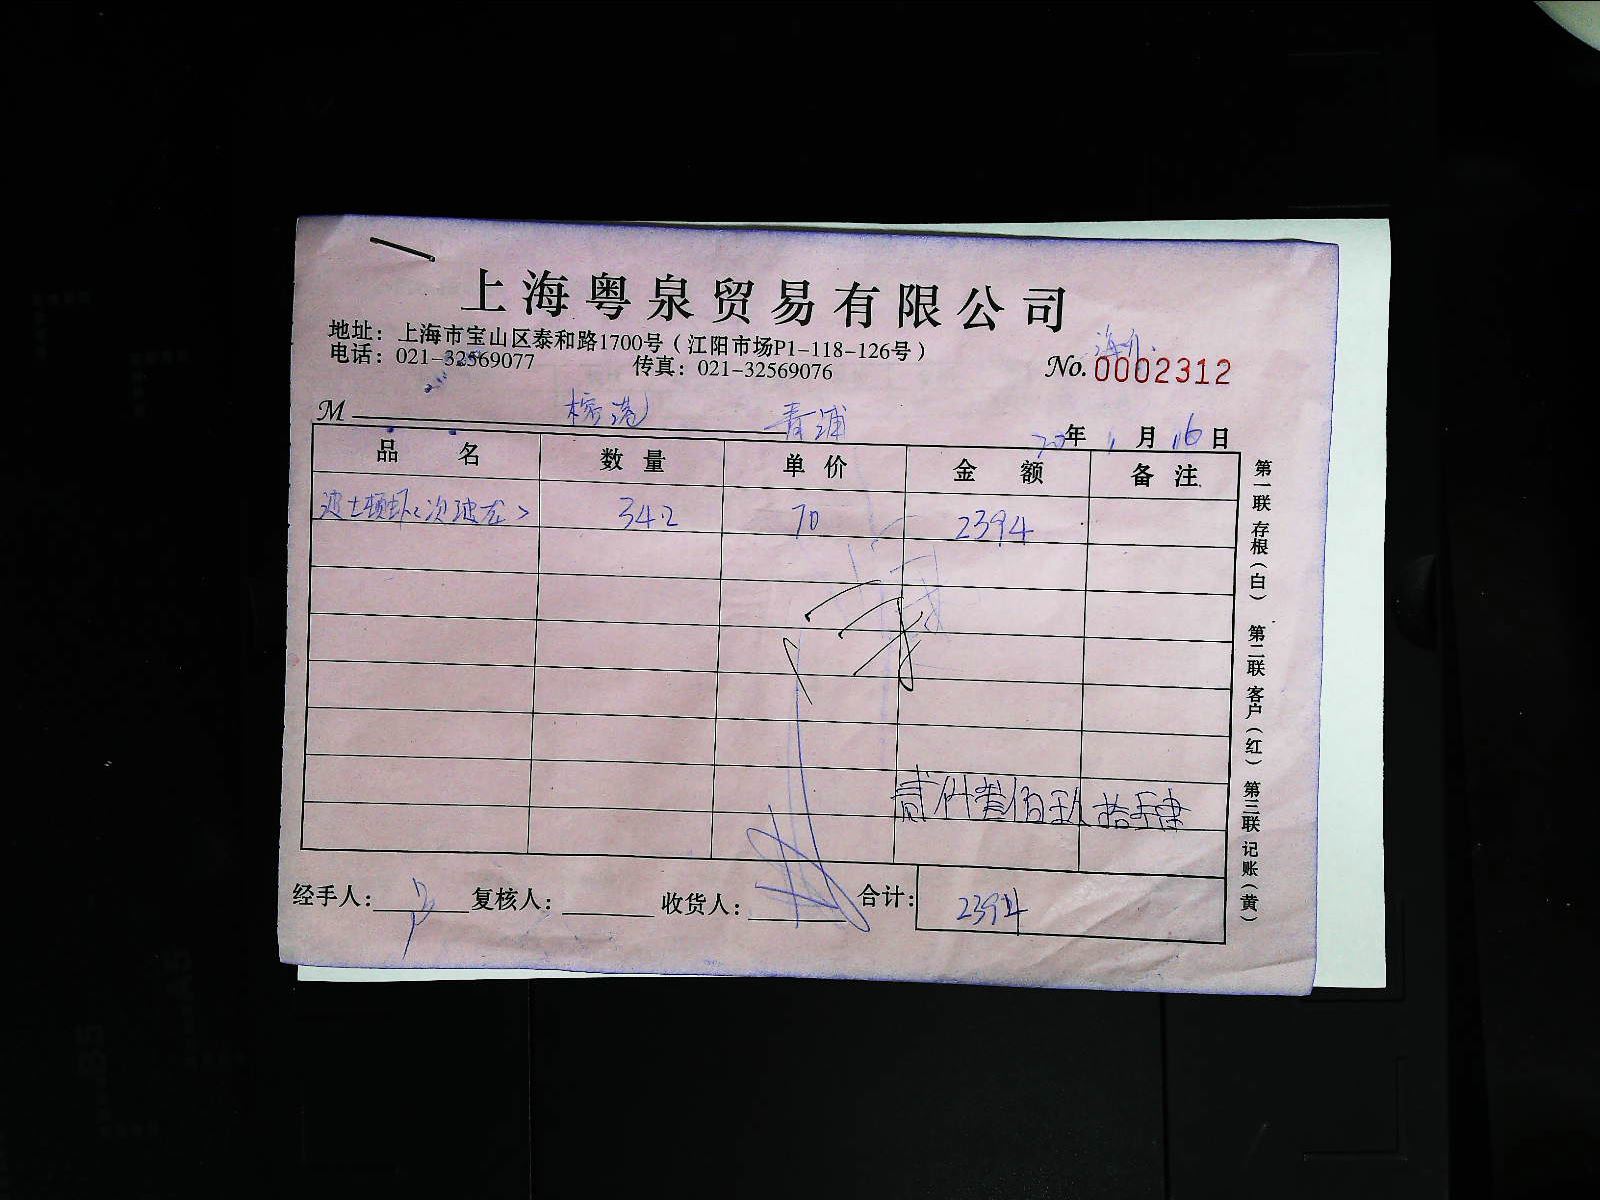 上海粤泉贸易有限公司
地址：上海市宝山区泰和路1700号（江阳市场P1-118-126号）
电话：021-32569077 传真：021-32569076
No. 0002312
M 青浦
20年 1月 16日
品 名 数 量 单 价 金 额 备 注
波士顿虾<次波龙> 34.2 70 2394
贰仟叁佰玖拾肆
经手人： 卢 复核人： 收货人： 合计： 2394
第一联 存根（白） 第二联 客户（红） 第三联 记账（黄）